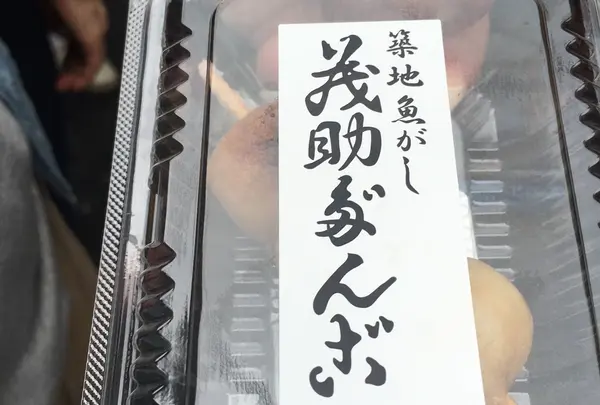 築地魚がし
茂助だんご